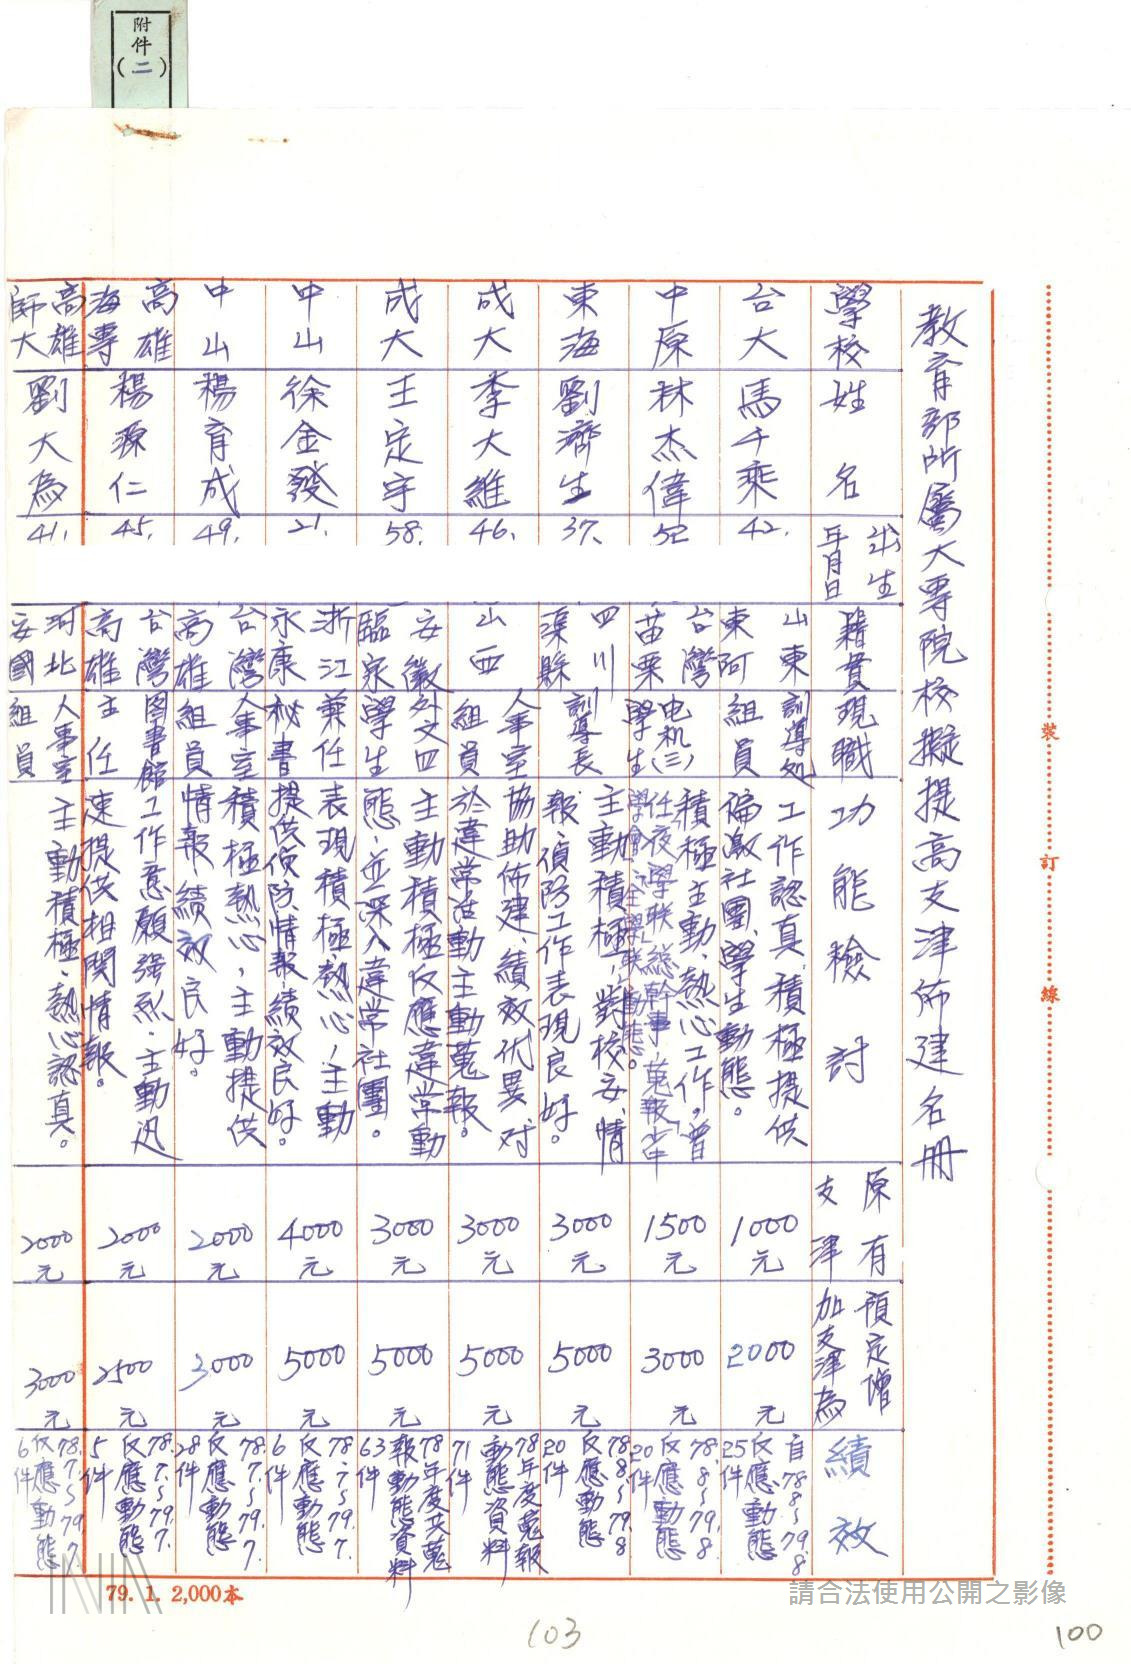 附件
(二)
教育部所屬大專院校擬提高支津佈建名冊
學校
姓名
出生
年月日
籍貫
現職
功能檢討
原有
支津
預定增
加支津為
績效
台大
馬千乘
42.
山東
東阿
訓導処
組員
工作認真、積極提供
偏激社團、學生動態。
1000
元
2000
元
自78.8~79.8
反應動態
25件
中原
林杰偉
52
台灣
苗栗
电机(三)
學生
積極主動、熱心工作,曾
任夜學联總幹事,蒐報
1500
元
3000
元
78.8~79.8.
反應動態
20件
東海
劉濟生
37.
四川
渠縣
訓導長
主動積極,對校安、情
報、偵防工作表現良好。
3000
元
5000
元
78.8~79.8
反應動態
20件
成大
李大維
46.
山西
人事室
組員
協助佈建、績效优異、对
於違常活動主動蒐報。
3000
元
5000
元
78年度蒐報
動態資料
71件
成大
王定宇
58.
安徽
臨泉
外文四
學生
主動積極反應違常動
態,並深入違常社團。
3000
元
5000
元
78年度共蒐
報動態資料
63件
中山
徐金發
21.
浙江
永康
兼任
秘書
表現積極熱心,主動
提供偵防情報績效良好。
4000
元
5000
元
78.7~79.7.
反應動態
6件
中山
楊育成
49.
台灣
高雄
人事室
組員
積極熱心,主動提供
情報績效良好。
2000
元
3000
元
78.7.~79.7.
反應動態
28件
高雄
海專
楊源仁
45.
台灣
高雄
图書館
主任
工作意願強烈.主動迅
速提供相関情報。
2000
元
2500
元
78.7.~79.7.
反應動態
5件
高雄
師大
劉大為
41.
河北
安國
人事室
組員
主動積極、熱心認真。
2000
元
3000
元
78.7.~79.7.
反應動態
6件
裝
訂
線
79. 1. 2,000本
請合法使用公開之影像
103
100